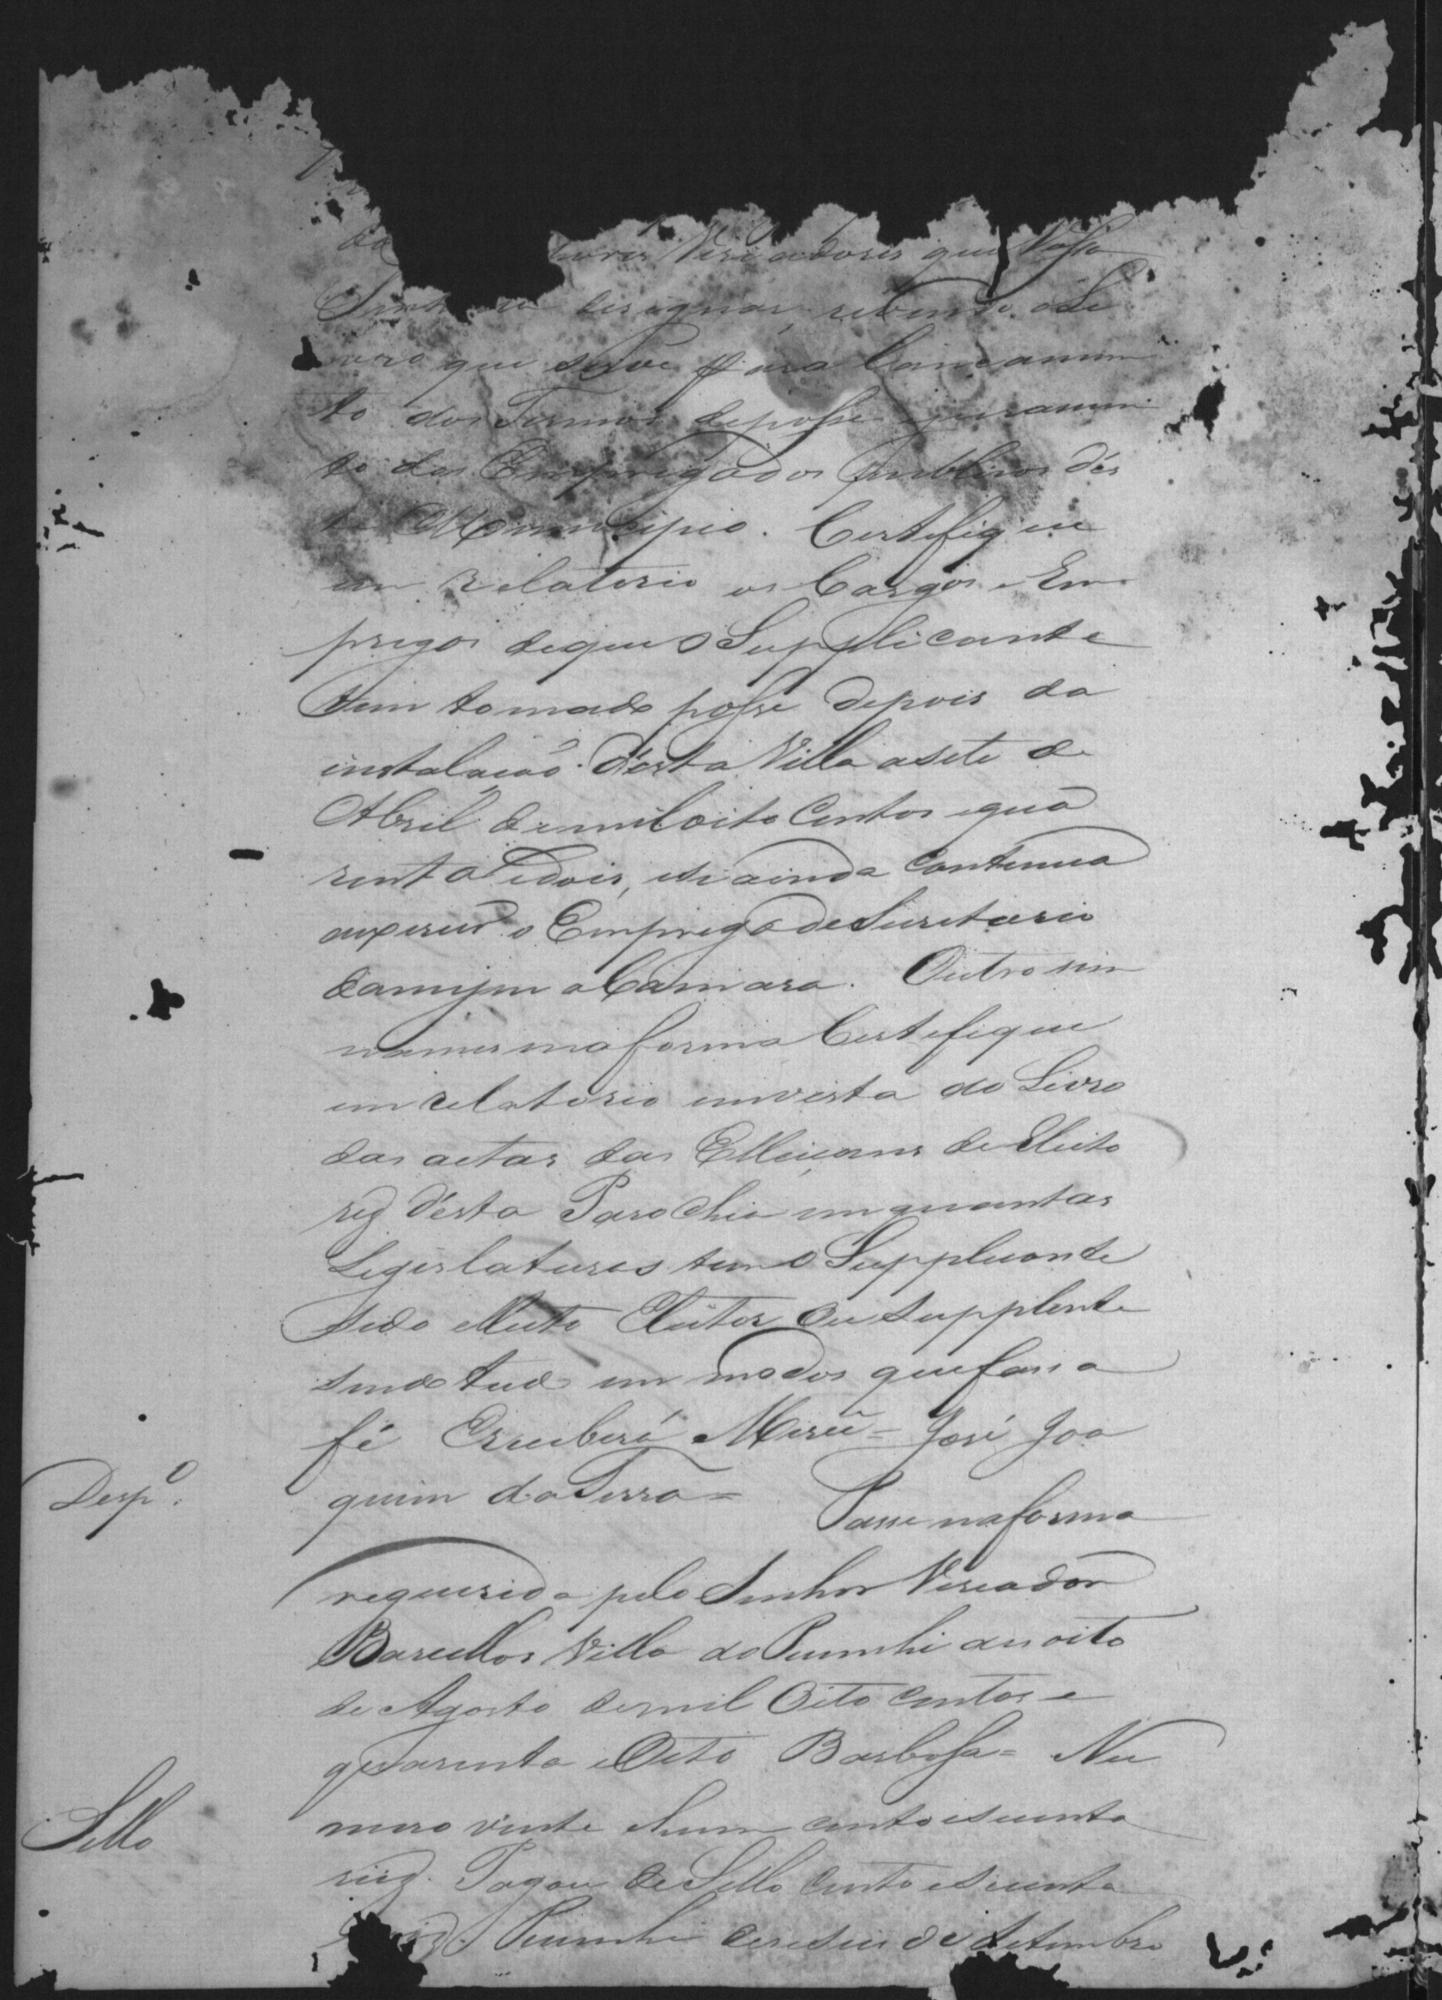 Vereadores que Vossa
designar, revendo o Li
vro que serve para lancamen
to dos Termos de posse e juramen
to dos Empregados publicos dés
te Municipio. Certefique
em relatorio os Cargos e Em
pregos de que o Supplicante
tem tomado posse depois da
instalação d'esta Villa a sete de
Abril de mil oito centos e qua
renta e dois, e se ainda continua
a exercer o Emprego de Secretario
da mesma Camara. Outro sim
na mesma forma Certefique
em relatorio em vista do Livro
das actas das Elleiçoens de Eleito
res d'ésta Parochia em quantas
Legislaturas tem o Supplicante
sido elleito Eleitor ou Supplente
sendo tudo em modos que faça
fé E receberá Mercê = José Joa
Desp.º
quim da Serra = Passe na forma
requerida pelo Senhor Vereador
Barcellos Villa do Piumhi aos oito
de Agosto de mil Oito centos e
quarenta e Oito Barbosa = Nu
Sello
mero vinte e hum cento e secenta
reis. Pagou de Sello cento e secenta
Piumhi dezeseis de Setembro